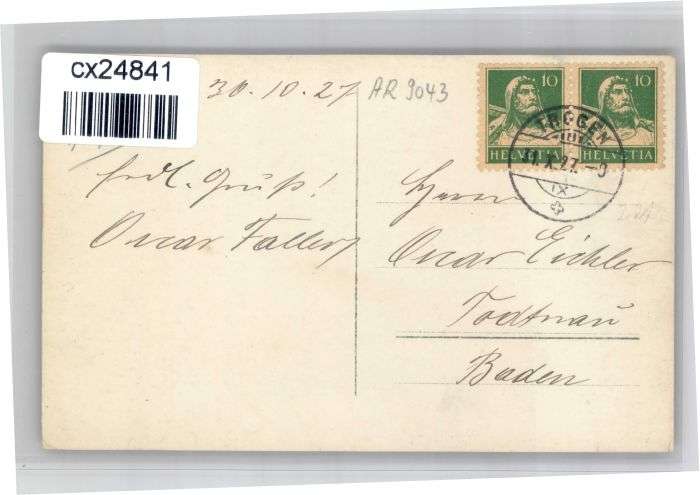 cx24841
30.10.27
AR 9043
10 10
HELVETIA HELVETIA
TROGEN
frdl. Gruß!
Oscar Faller
Herrn
Oscar Eichler
Todtnau
Baden